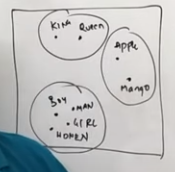 KING QUEEN
Apple
Mango
BOY
MAN
GIRL
WOMEN